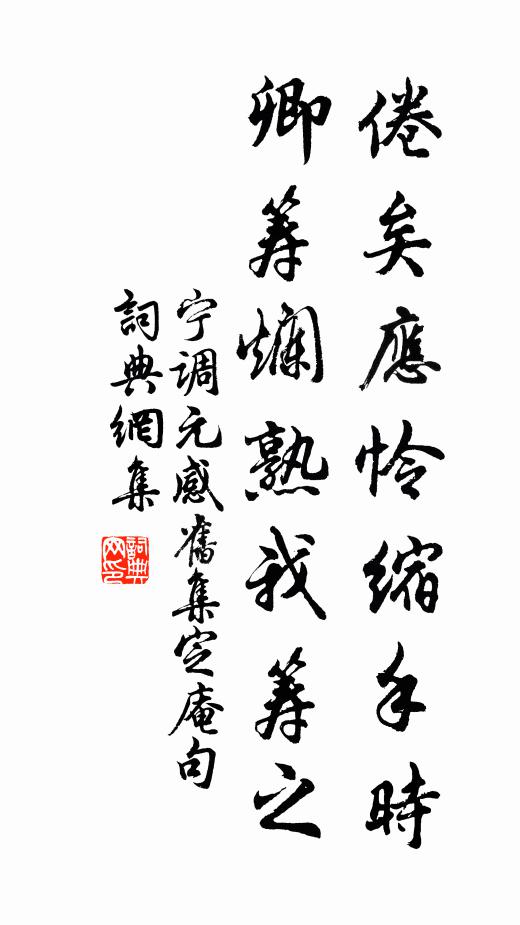 倦矣應怜縮手時
卿筹爛熟我筹之
宁调元感舊集定庵句
詞典網集
詞典
网印